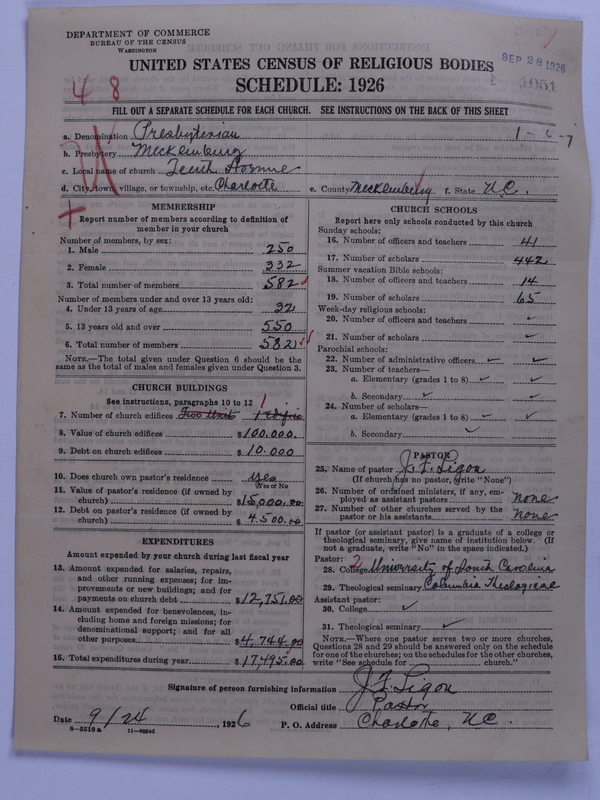 DEPARTMENT OF COMMERCE
BUREAU OF THE CENSUS
WASHINGTON
SEP 28 1926
1051
UNITED STATES CENSUS OF RELIGIOUS BODIES
SCHEDULE: 1926
4 8
FILL OUT A SEPARATE SCHEDULE FOR EACH CHURCH. SEE INSTRUCTIONS ON THE BACK OF THIS SHEET
a. Denomination Presbyterian 1-6-7
b. Presbytery Mecklenburg
c. Local name of church Tenth Avenue
d. City, town, village, or township, etc. Charlotte e. County Mecklenburg f. State N.C.
MEMBERSHIP
Report number of members according to definition of
member in your church
Number of members, by sex:
1. Male 250
2. Female 332
3. Total number of members 582
Number of members under and over 13 years old:
4. Under 13 years of age 32
5. 13 years old and over 550
6. Total number of members 582
NOTE.—The total given under Question 6 should be the
same as the total of males and females given under Question 3.
CHURCH BUILDINGS
See instructions, paragraphs 10 to 12
7. Number of church edifices Two Unit 1 Edifice
8. Value of church edifices $100.000.
9. Debt on church edifices $10.000
10. Does church own pastor's residence yes
(Yes or No)
11. Value of pastor's residence (if owned by
church) $15,000.00
12. Debt on pastor's residence (if owned by
church) $4.500.00
EXPENDITURES
Amount expended by your church during last fiscal year
13. Amount expended for salaries, repairs,
and other running expenses; for im-
provements or new buildings; and for
payments on church debt $12,751.00
14. Amount expended for benevolences, in-
cluding home and foreign missions; for
denominational support; and for all
other purposes $4,744.00
15. Total expenditures during year $17,495.00
CHURCH SCHOOLS
Report here only schools conducted by this church
Sunday schools:
16. Number of officers and teachers 41
17. Number of scholars 442
Summer vacation Bible schools:
18. Number of officers and teachers 14
19. Number of scholars 65
Week-day religious schools:
20. Number of officers and teachers
21. Number of scholars
Parochial schools:
22. Number of administrative officers
23. Number of teachers—
a. Elementary (grades 1 to 8)
b. Secondary
24. Number of scholars—
a. Elementary (grades 1 to 8)
b. Secondary
PASTOR
25. Name of pastor J. F. Ligon
(If church has no pastor, write "None")
26. Number of ordained ministers, if any, em-
ployed as assistant pastors None
27. Number of other churches served by the
pastor or his assistants None
If pastor (or assistant pastor) is a graduate of a college or
theological seminary, give name of institution below. (If
not a graduate, write "No" in the space indicated.)
Pastor: 2
28. College University of South Carolina
29. Theological seminary Columbia Theological
Assistant pastor:
30. College
31. Theological seminary
NOTE.—Where one pastor serves two or more churches,
Questions 28 and 29 should be answered only on the schedule
for one of the churches; on the schedules for the other churches,
write "See schedule for church."
Signature of person furnishing information J. F. Ligon
Official title Pastor
Date 9/24, 1926 P. O. Address Charlotte, N.C.
8-5519a 11-